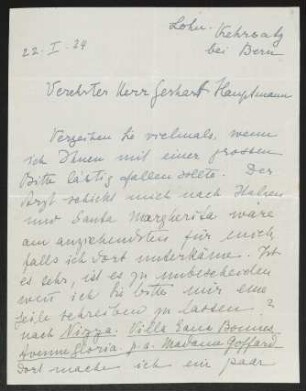 Lohn. Kehrsatz
bei Bern
22. I. 24
Verehrter Herr Gerhart Hauptmann
Verzeihen Sie vielmals, wenn
ich Ihnen mit einer grossen
Bitte lästig fallen sollte. Der
Arzt schickt mich nach Italien
und Santa Margherita wäre
am anziehendsten für mich,
falls ich dort unterkäme. Ist
es sehr, ist es zu unbescheiden
wenn ich Sie bitte mir eine
Zeile schreiben zu lassen?
nach Nizza. Villa
Avenue Gloria p. a. Madame Goffard
Dort mache ich ein paar